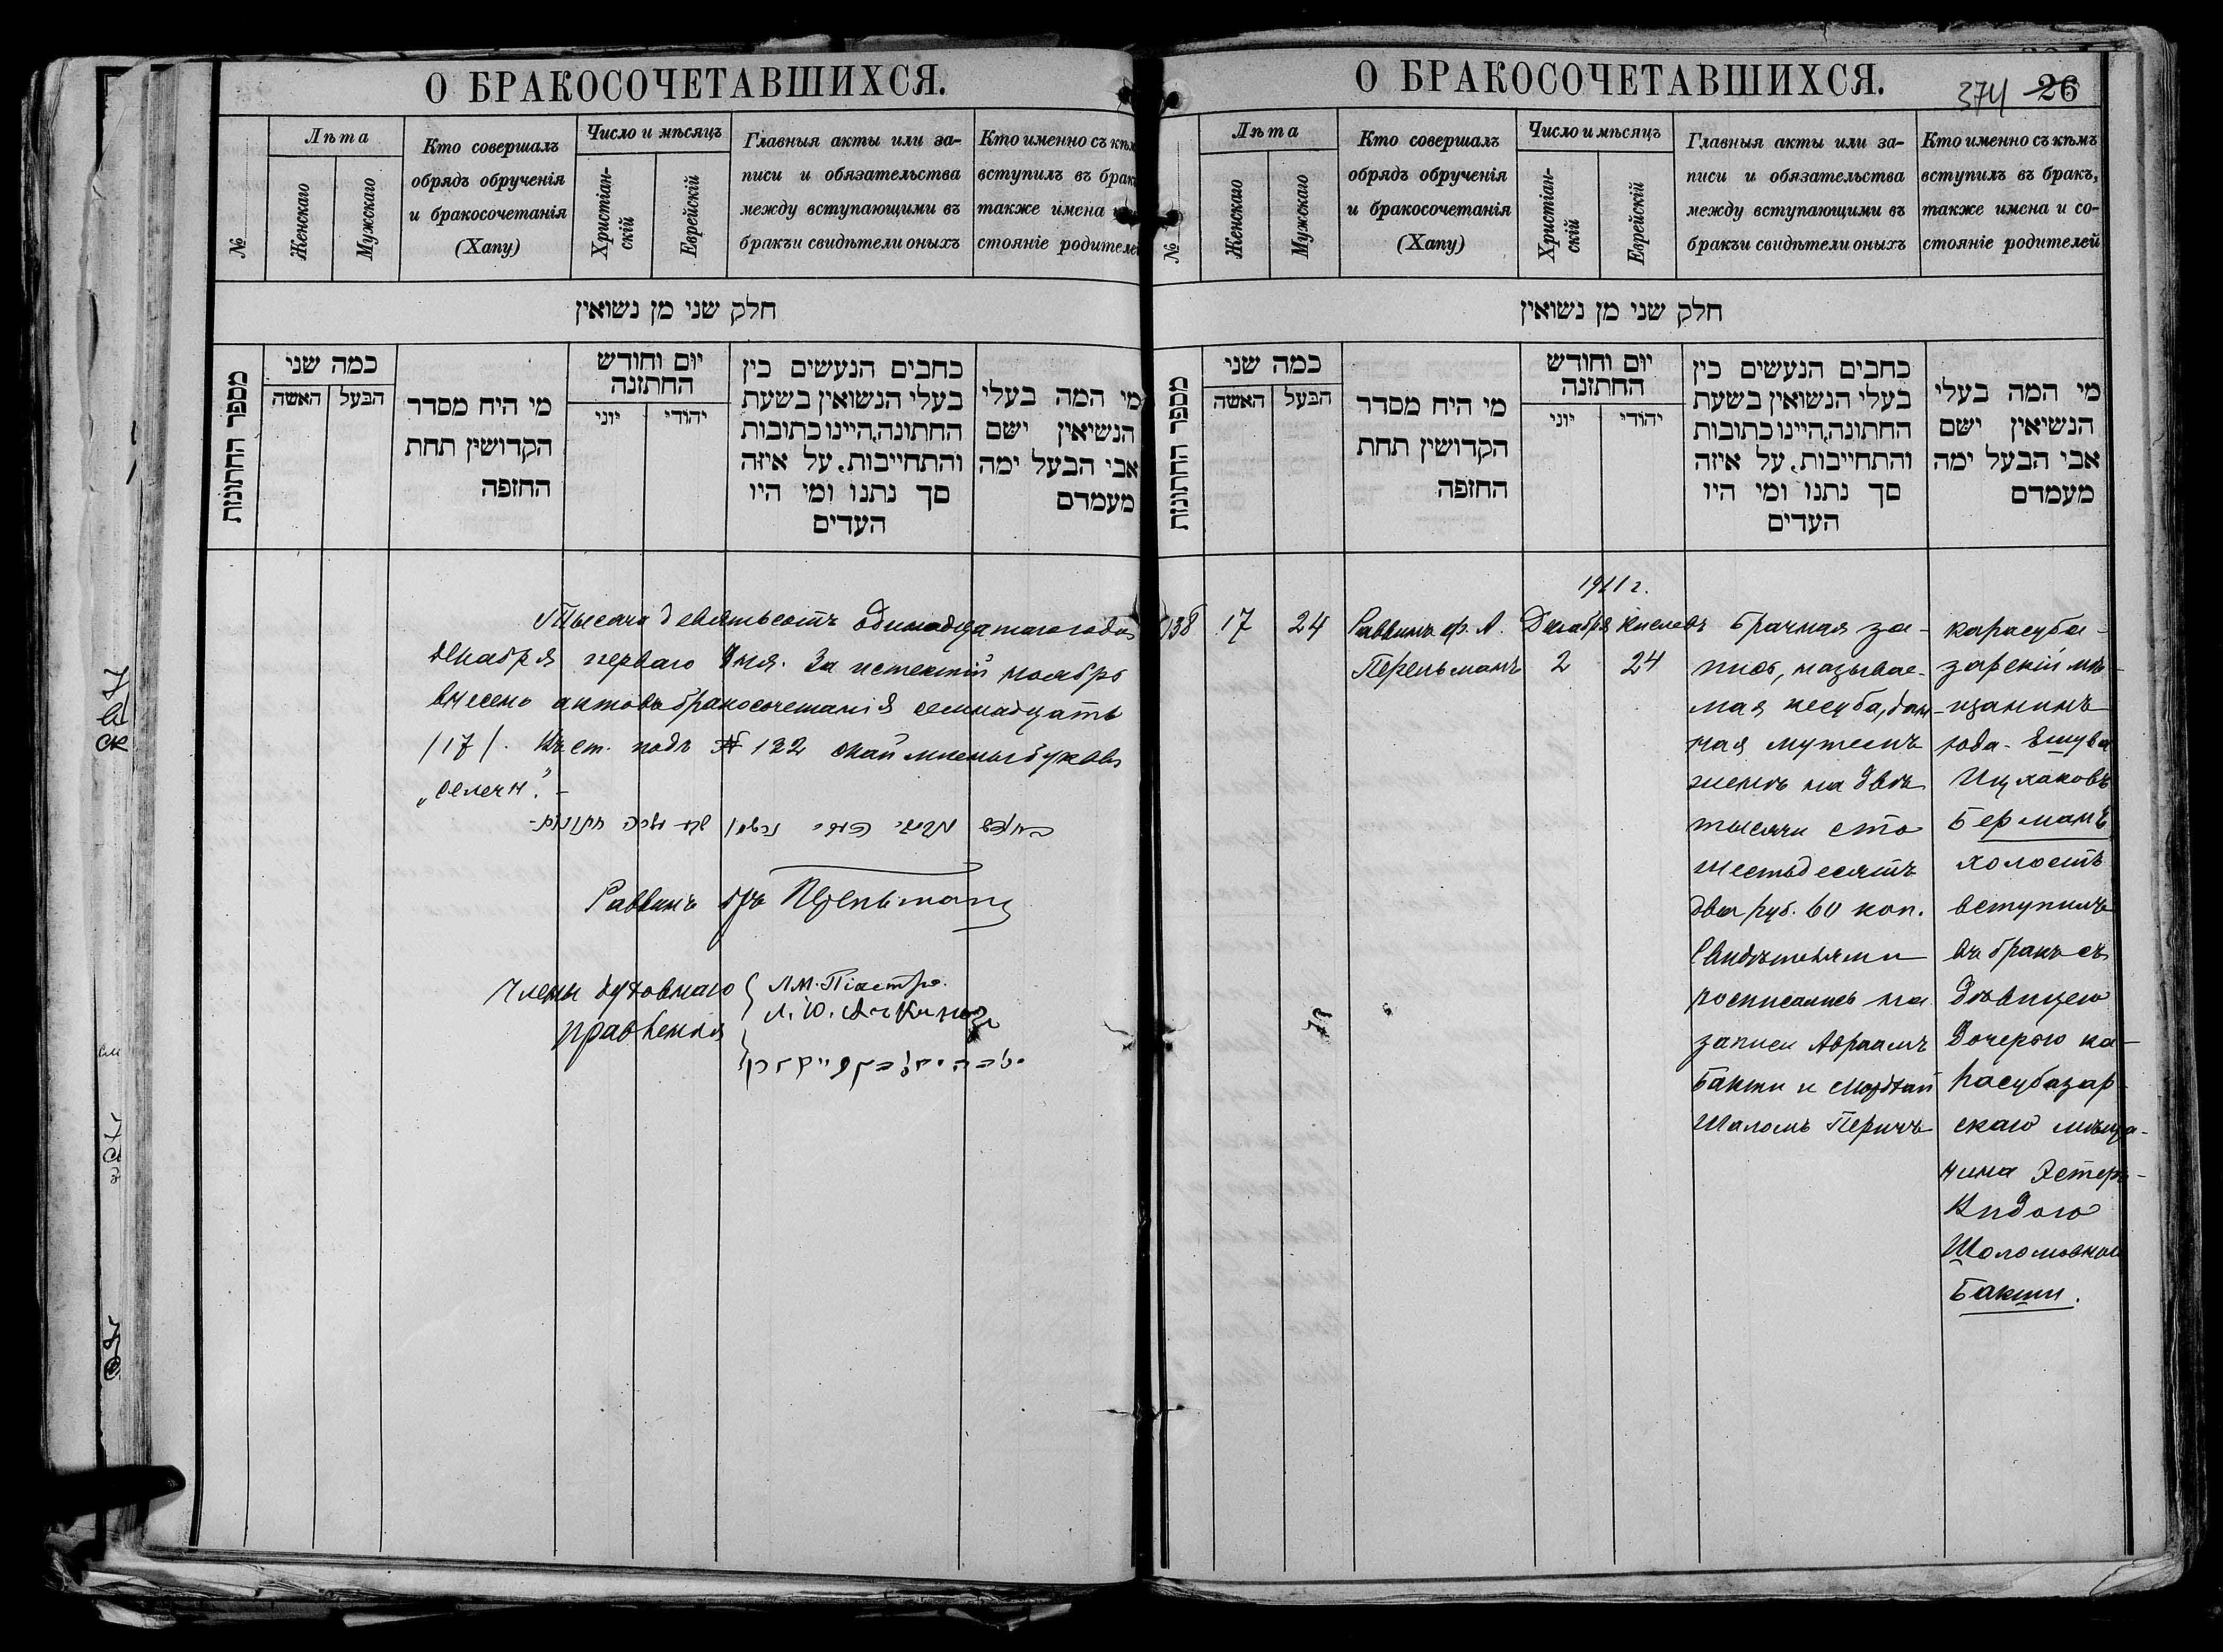 О БРАКОСОЧЕТАВШИХСЯ.
№
Лѣта
Женскаго
Мужскаго
Кто совершалъ
обрядъ обрученія
и бракосочетанія
(Хапу)
Число и мѣсяцъ
Христіан-
скій
Еврейскій
Главныя акты или за-
писи и обязательства
между вступающими въ
бракъи свидѣтели оныхъ
Кто именно съ кѣм
вступилъ въ бракъ
также имена
стояніе родителе
חלק שני מן נשואין
מספר החתונות
כמה שני
האשה
הבעל
מי היח מסדר
הקדושין תחת
החופה
יום וחודש
החתונה
יוני
יהודי
כחבים הנעשים כין
בעלי הנשואין בשעת
החתונה, היינו כתובות
והתחייבות, על איזה
סך נתנו ומי היו
העדים
מי המה בעלי
הנשיאין ישם
אבי הבעל ימה
מעמדם
Тысяча девятьсотъ одинадцатаго года
декабря перваго дня. За истекшій ноябрь
внесено актовъ бракосочетанія семнадцать
/17/. Въ ст. подъ № 122
Раввинъ Перельманъ
Члены духовнаго
правленія
Л.М. Піастро.
О БРАКОСОЧЕТАВШИХСЯ.
374 26
№
Лѣта
Женскаго
Мужскаго
Кто совершалъ
обрядъ обрученія
и бракосочетанія
(Хапу)
Число и мѣсяцъ
Христіан-
скій
Еврейскій
Главныя акты или за-
писи и обязательства
между вступающими въ
бракъи свидѣтели оныхъ
Кто именно съ кѣмъ
вступилъ въ бракъ,
также имена и со-
стояніе родителей
חלק שני מן נשואין
מספר החתונות
כמה שני
האשה
הבעל
מי היח מסדר
הקדושין תחת
החופה
יום וחודש
החתונה
יוני
יהודי
כחבים הנעשים כין
בעלי הנשואין בשעת
החתונה, היינו כתובות
והתחייבות, על איזה
סך נתנו ומי היו
העדים
מי המה בעלי
הנשיאין ישם
אבי הבעל ימה
מעמדם
1911 г.
138
17
24
Раввинъ Ф. А.
Перельманъ
Декабря
2
Кислевъ
24
Брачная за-
пись, называе-
мая кесуба, дан-
ная мужемъ
женѣ на двѣ
тысячи сто
шестьдесятъ
два руб. 60 коп.
Свидѣтелями
росписались на
записи Авраамъ
Бакши и Мордхай
Шаломъ Перичъ
Карасуба-
зарскій мѣ-
щанинъ
Іода-Ешуа
Ицхаковъ
Берманъ
холостъ
вступилъ
въ бракъ съ
дѣвицею
дочерью ка-
расубазар-
скаго мѣща-
нина Эстеръ-
Видою
Шоломовною
Бакши.